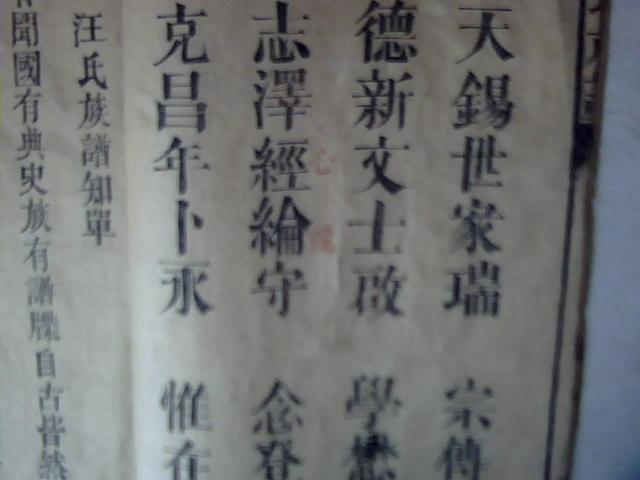 天錫世家瑞 宗傳
德新文士啟 學懋
志澤經綸守 念登
克昌年卜永 惟在
汪氏族譜知單
聞國有典史族有譜牒自古皆然